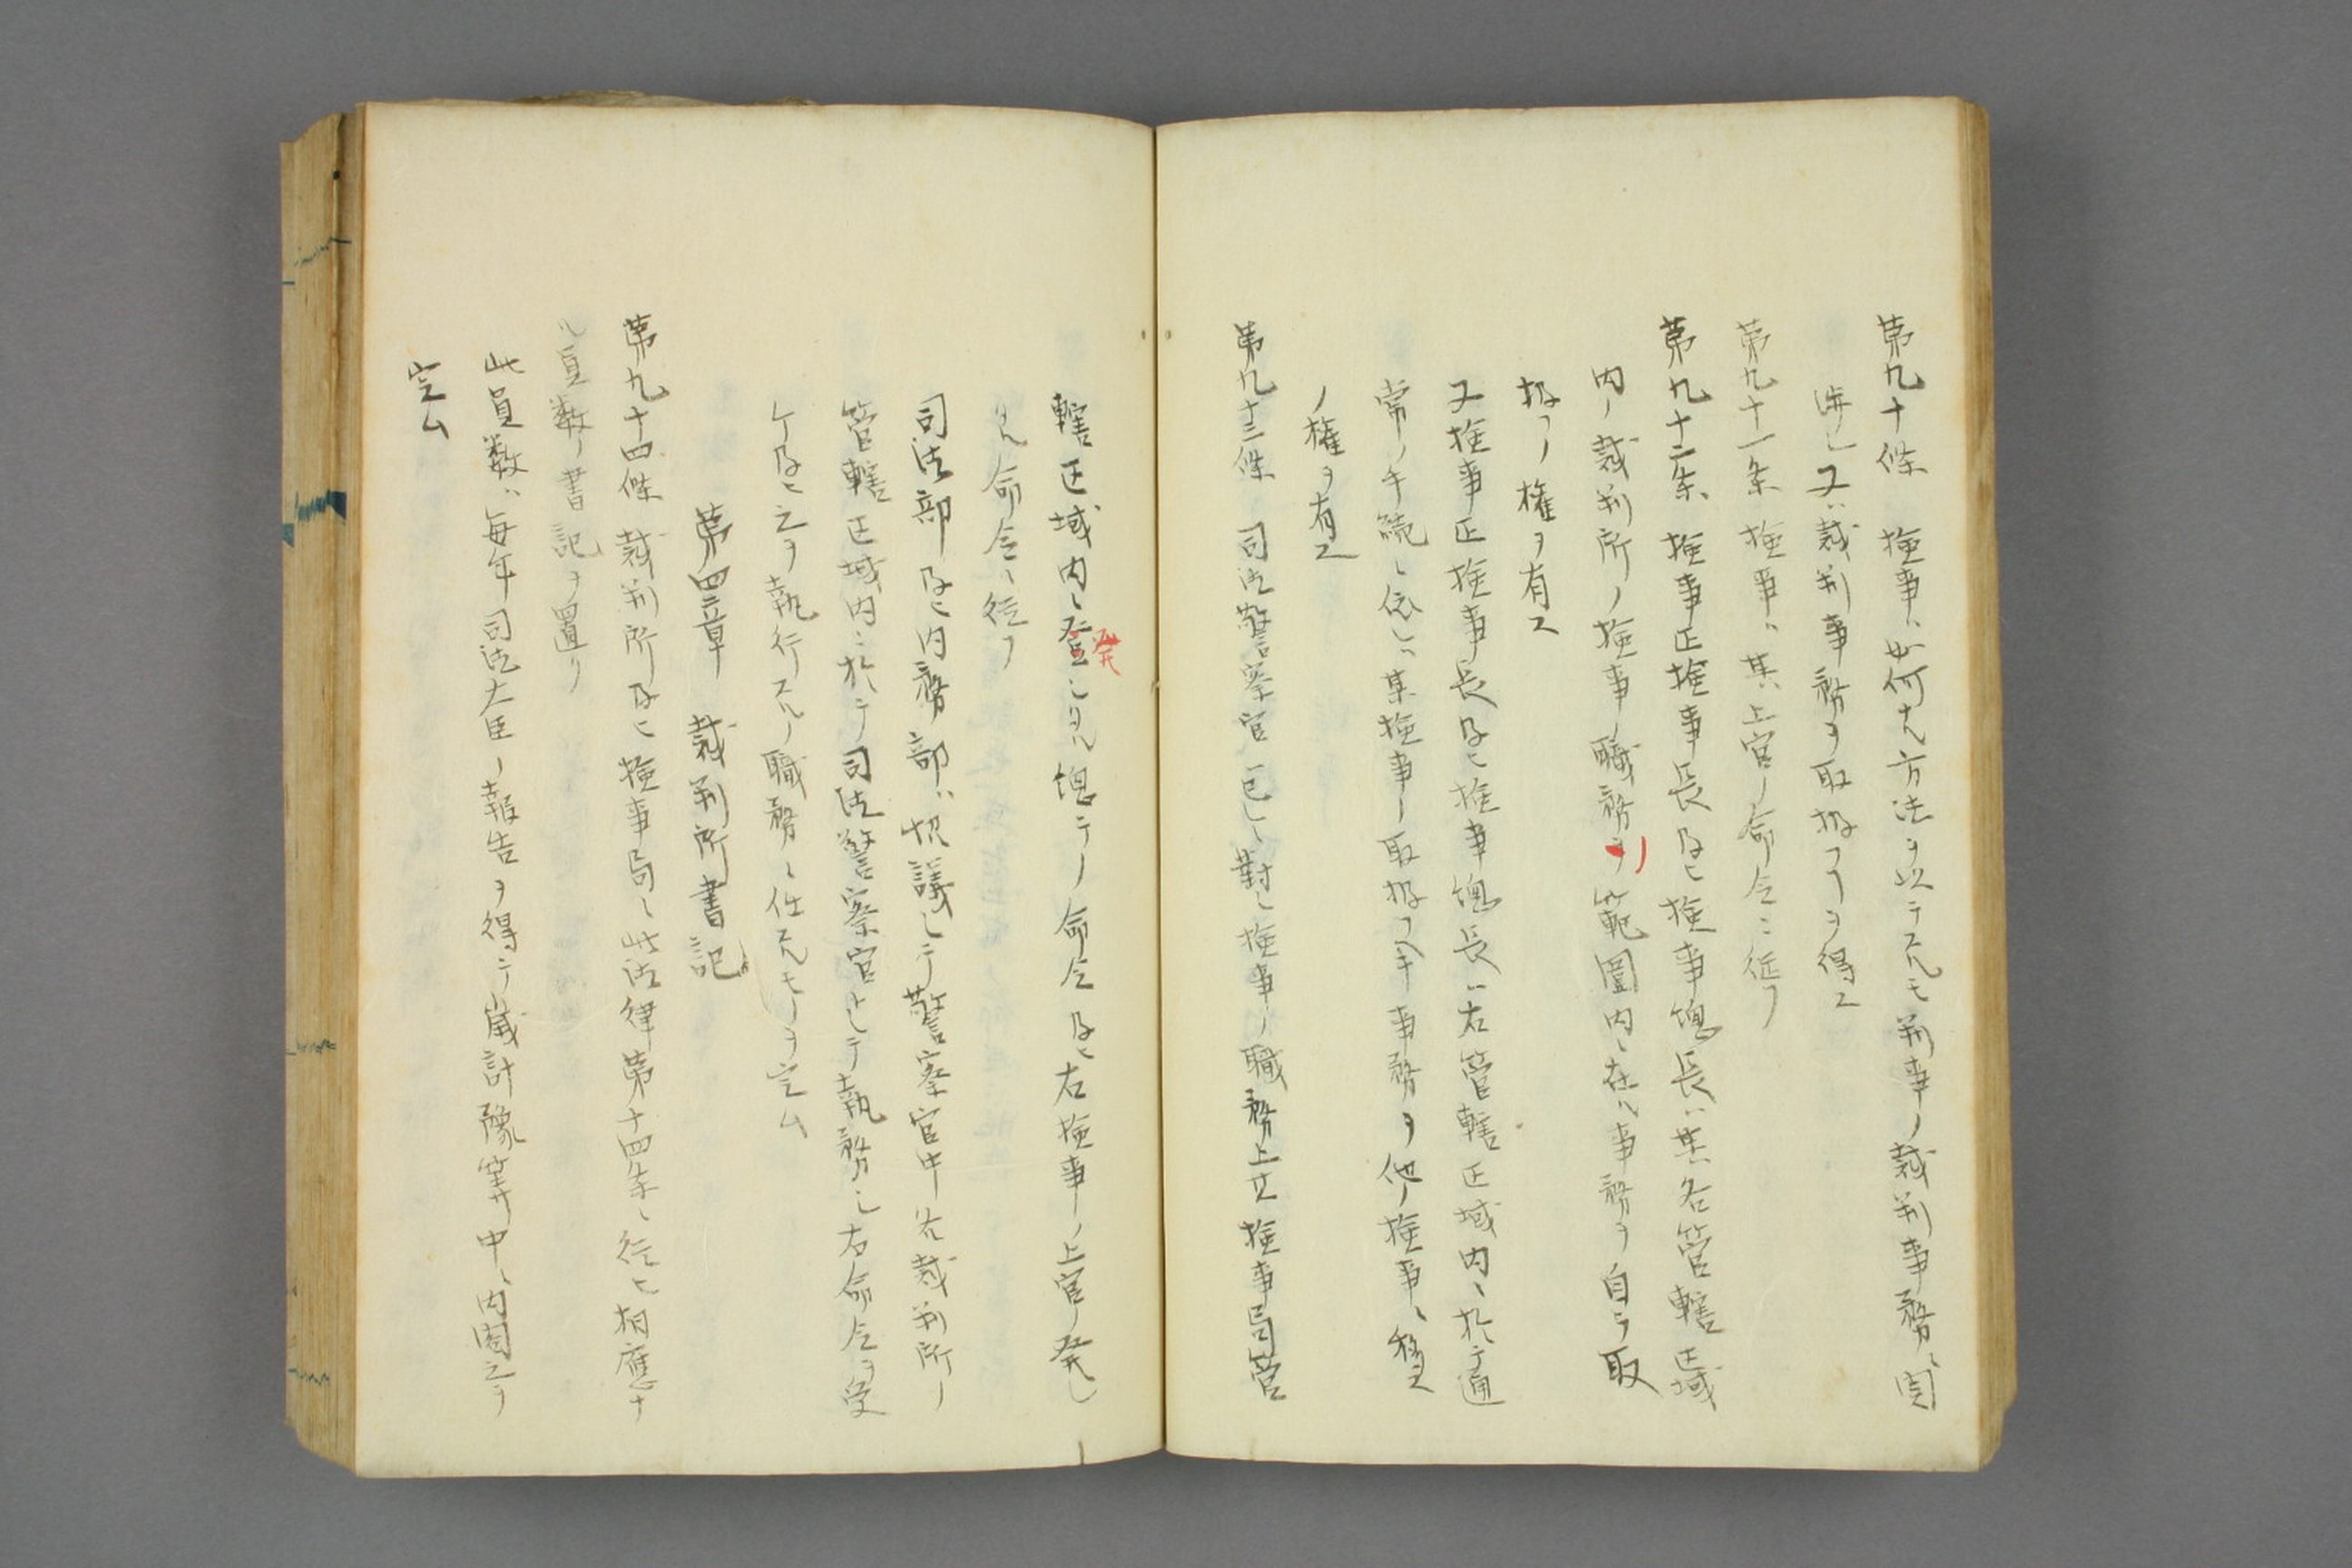 第九十條 検事ハ如何ナル方法ヲ以テスルモ判事ノ裁判事務ニ関
渉シ又ハ裁判事務ヲ取扱フヿヲ得ス
第九十一条 検事ハ其上官ノ命令ニ従フ
第九十二条 検事正検事長及ヒ検事総長ハ其各管轄区域
内ノ裁判所ノ検事ノ職務ノ範囲内ニ在ル事務ヲ自ラ取
扱フノ権ヲ有ス
又検事正検事長及ヒ検事総長ハ右管轄区域内ニ於テ通
常ノ手続ニ依レハ某検事ノ取扱フヘキ事務ヲ他ノ検事ニ移ス
ノ権ヲ有ス
第九十三條 司法警察官ハ己レニ對シ検事ノ職務上又検事局管
轄区域内ニ發シタル総テノ命令及ヒ右検事ノ上官ノ発シ
発
タル命令ニ従フ
司法部及ヒ内務部ハ協議シテ警察官中各裁判所ノ
管轄区域内ニ於テ司法警察官トシテ執務シ右命令ヲ受
ケ及ヒ之ヲ執行スルノ職務ニ任スルモノヲ定ム
第四章 裁判所書記
第九十四條 裁判所及ヒ検事局ニ此法律第十四条ニ従ヒ相應ナ
ル員数ノ書記ヲ置ク
此員数ハ毎年司法大臣ノ報告ヲ得テ歳計豫算中ニ内閣之ヲ
定ム